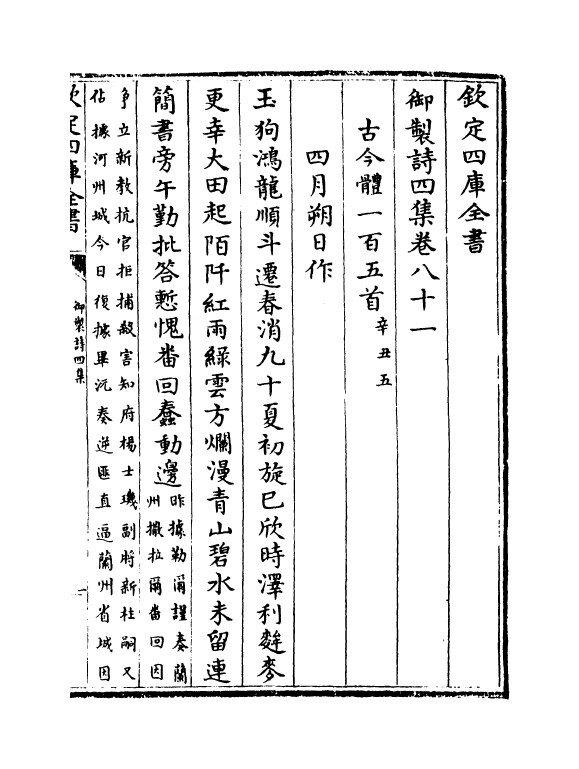 欽定四庫全書
御製詩四集卷八十一
古今體一百五首辛丑五
四月朔日作
玉狗鴻龍順斗遷春消九十夏初旋已欣時澤利麰麥
更幸大田起陌阡紅雨綠雲方爛漫青山碧水未留連
簡書旁午勤批答慙愧畨回蠢動邊
昨據勒爾謹奏蘭
州撒拉爾畨回因
争立新教抗官拒捕殺害知府楊士璣副將新柱嗣又
佔據河州城今日復據畢沅奏逆匪直逼蘭州省城因
欽定四庫全書
御製詩四集
一